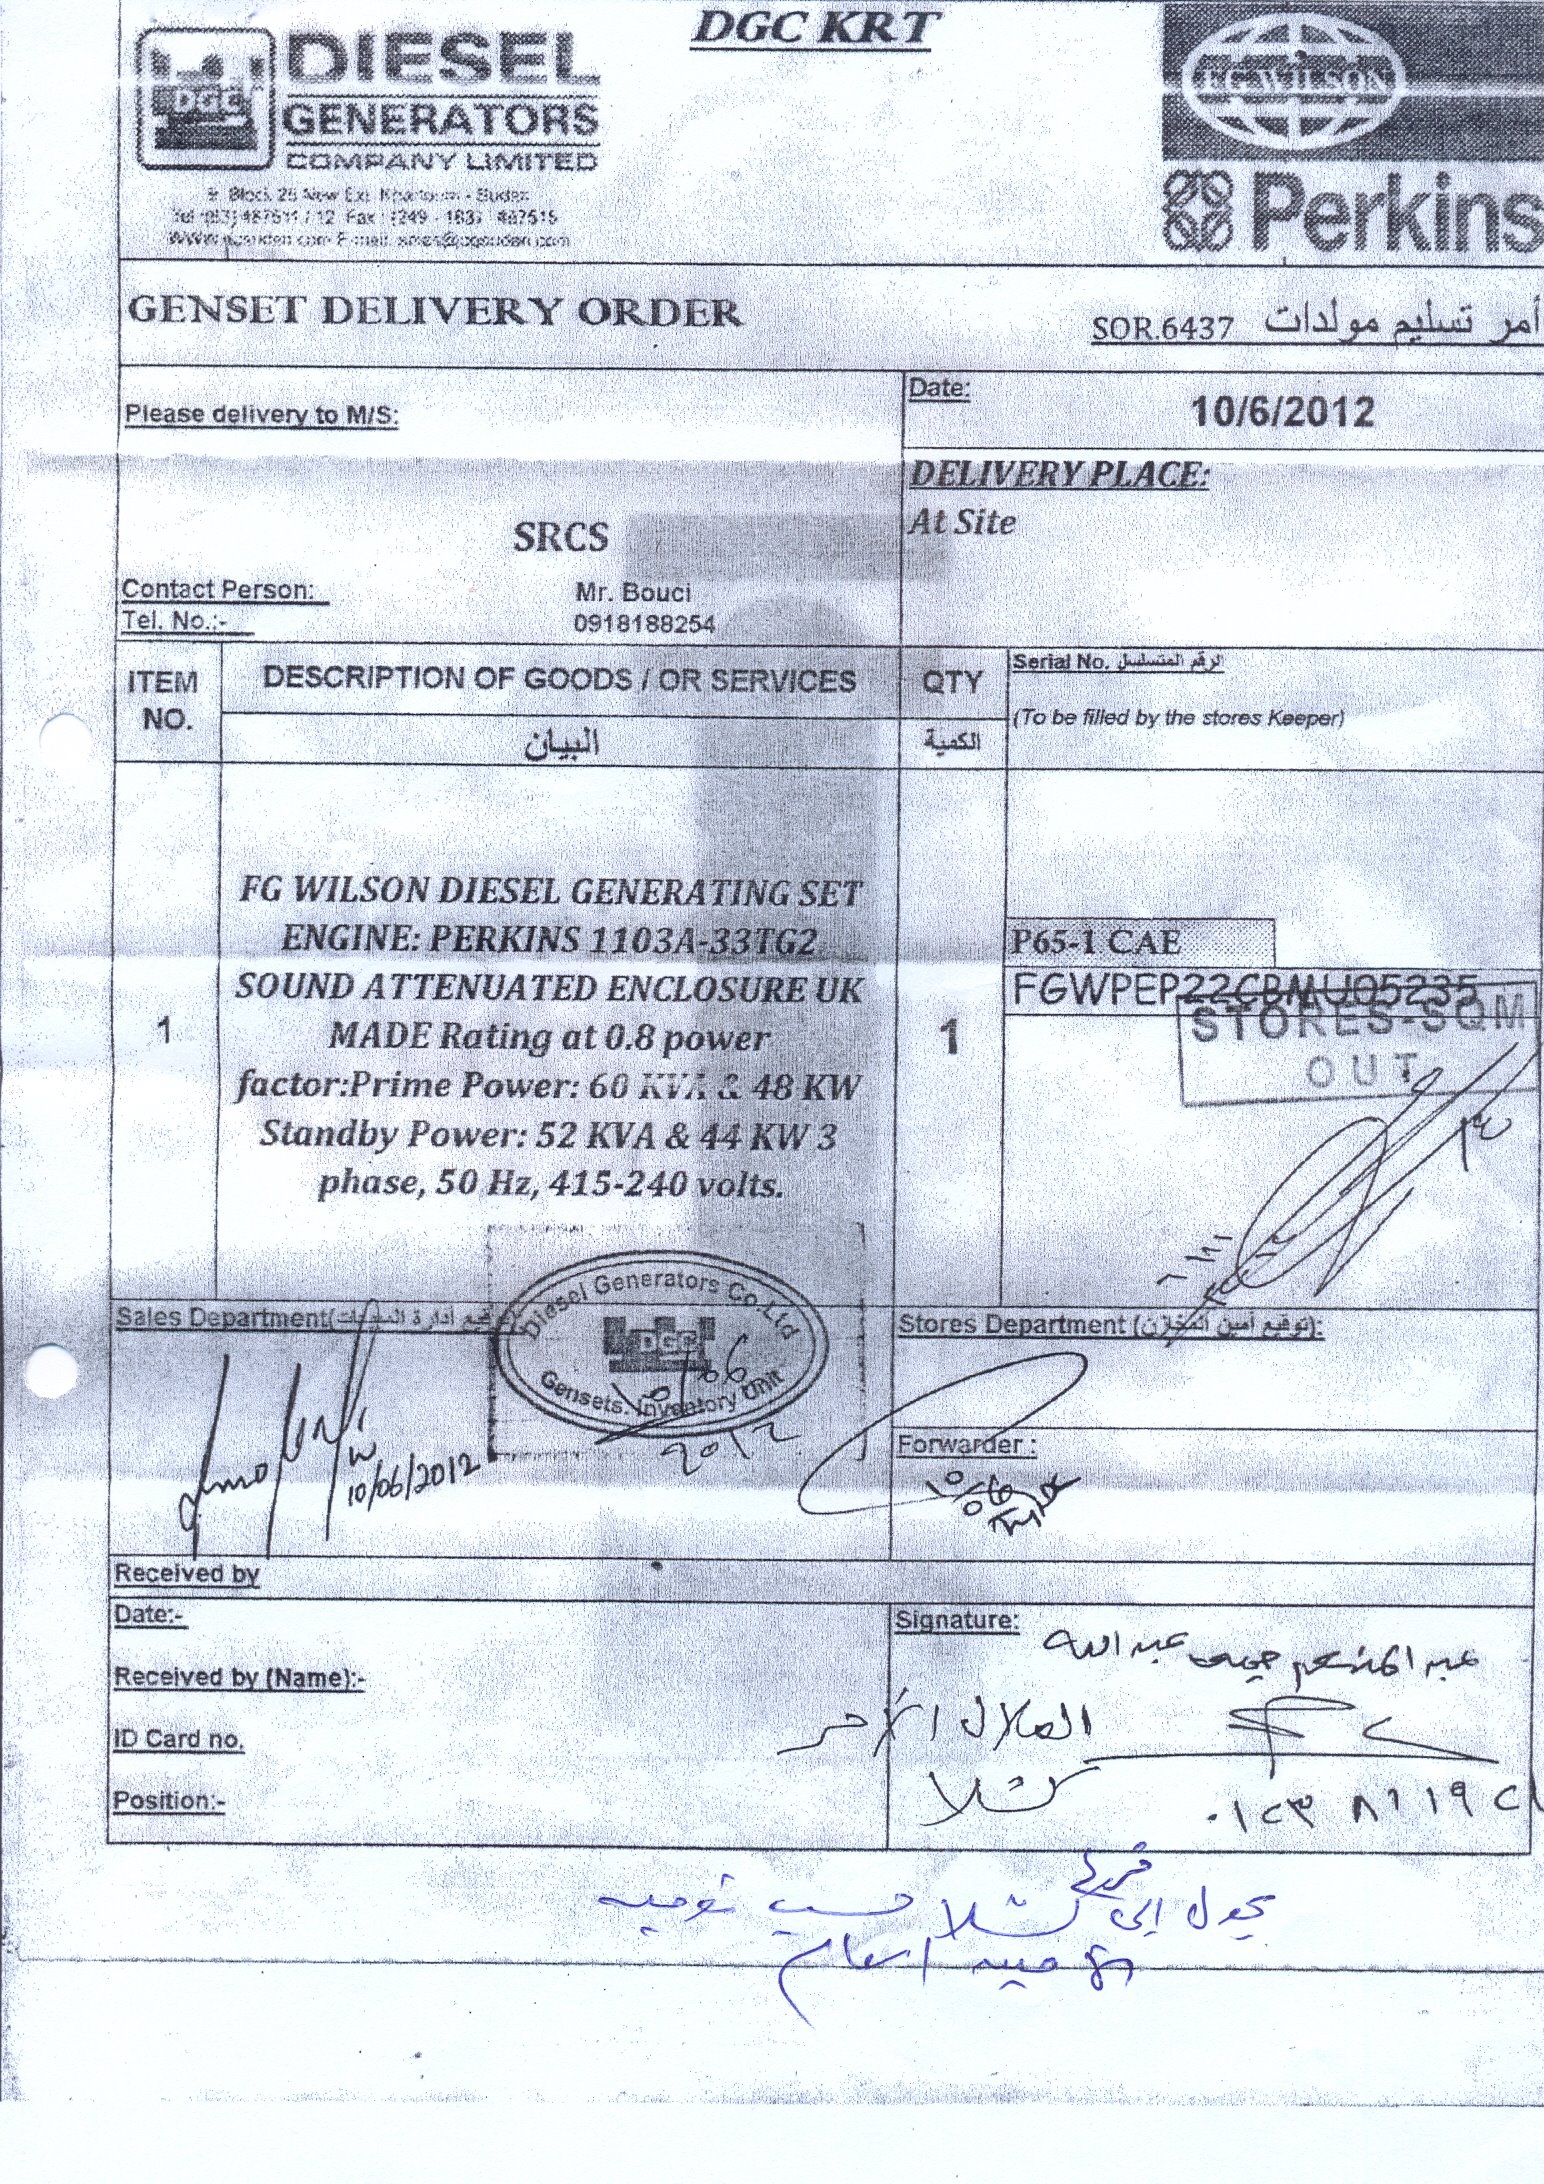 DGC KRT
DGC
DIESEL
GENERATORS
COMPANY LIMITED
FG WILSON
Perkins
GENSET DELIVERY ORDER
SOR.6437 أمر تسليم مولدات
Please delivery to M/S:
Date:
10/6/2012
DELIVERY PLACE:
At Site
SRCS
Contact Person: Mr. Bouci
Tel. No.:- 0918188254
ITEM NO.
DESCRIPTION OF GOODS / OR SERVICES
البيان
QTY
الكمية
Serial No. الرقم المتسلسل
(To be filled by the stores Keeper)
1
FG WILSON DIESEL GENERATING SET
ENGINE: PERKINS 1103A-33TG2
SOUND ATTENUATED ENCLOSURE UK
MADE Rating at 0.8 power
factor:Prime Power: 60 KVA & 48 KW
Standby Power: 52 KVA & 44 KW 3
phase, 50 Hz, 415-240 volts.
1
P65-1 CAE
FGWPEP22CBMU05235
STORES-SQM
OUT
Sales Department
10/06/2012
Diesel Generators Co.Ltd
DGC
Gensets. Inventory Unit
10/06
2012
Stores Department (توقيع أمين المخازن):
Forwarder :
Received by
Date:-
Received by (Name):-
ID Card no.
Position:-
Signature:
عبد المنعم عبد الله
الهلال الأحمر
كسلا
يحول إلى فرع كسلا حسب توجيه